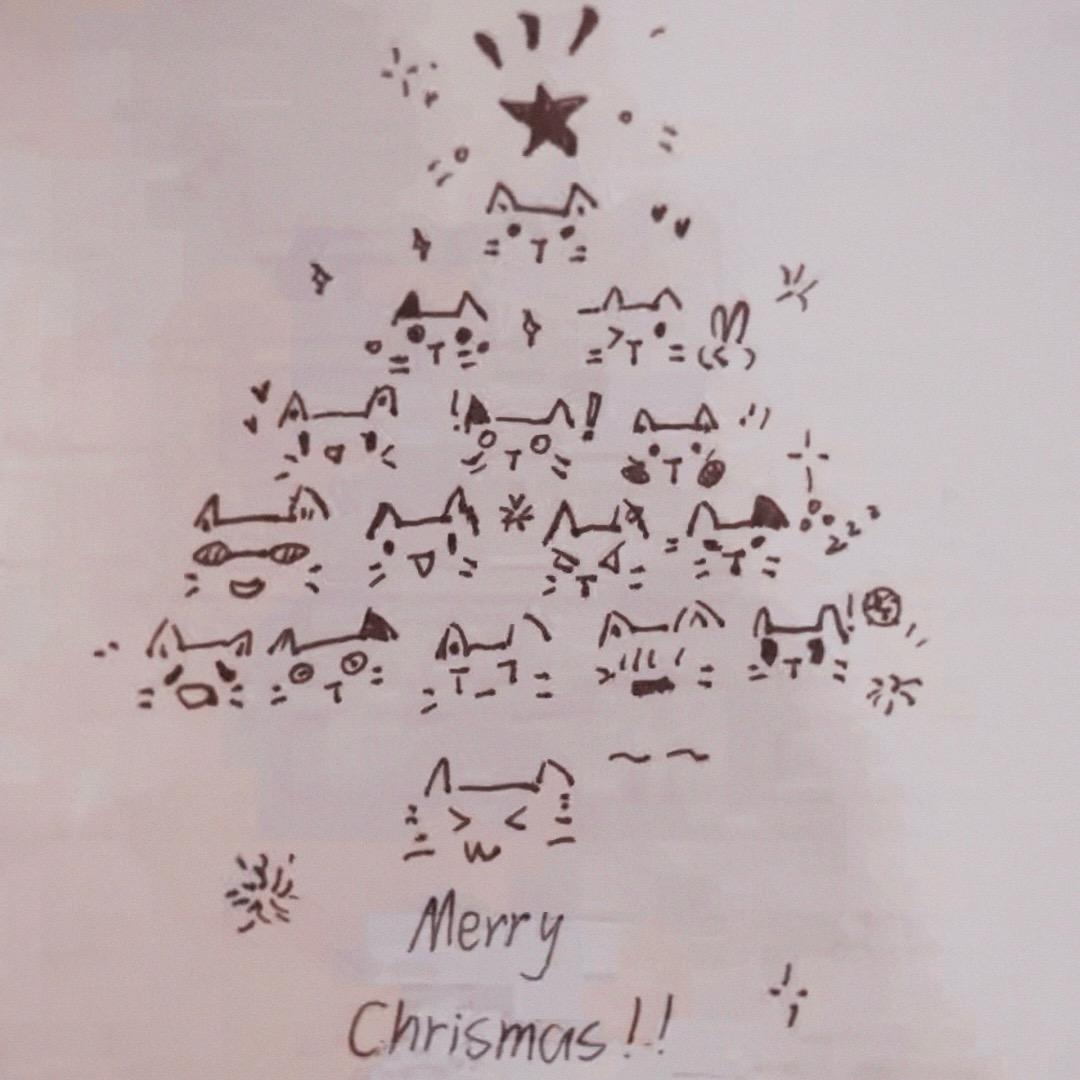 zzz
Merry
Chrismas!!